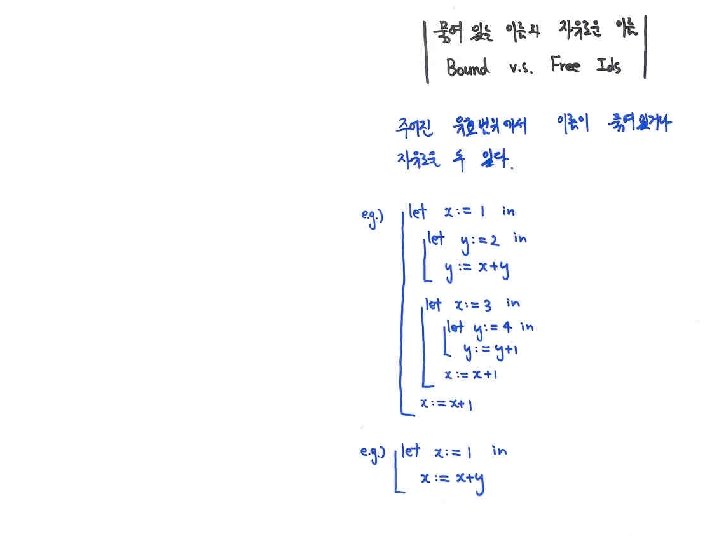 묶여 있는 이름과 자유로운 이름
Bound v.s. Free Ids
주어진 유효범위에서 이름이 묶여있거나
자유로울 수 있다.
e.g.) let x := 1 in
let y := 2 in
y := x+y
let x := 3 in
let y := 4 in
y := y+1
x := x+1
x := x+1
e.g.) let x := 1 in
x := x+y